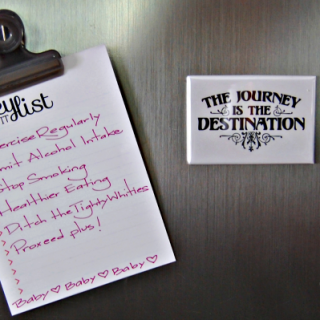 List
IT
Exercise Regularly
Limit Alcohol Intake
Stop Smoking
Healthier Eating
Ditch the Tighty Whities
Proceed plus!
Baby ♡ Baby ♡ Baby ♡
THE JOURNEY
IS THE
DESTINATION